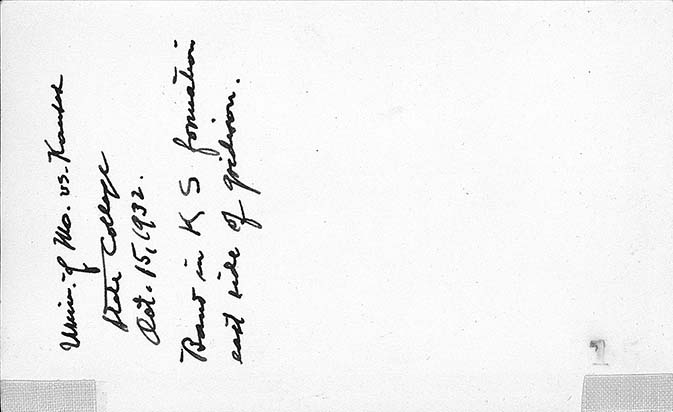 Univ. of Mo. vs. Kansas
State College
Oct. 15, 1932.
Band in K S formation
east side of gridiron.
7